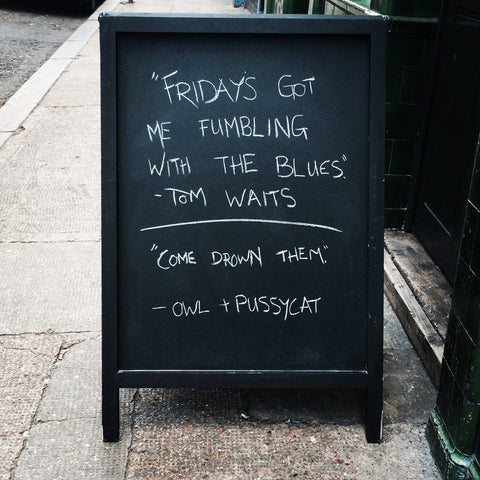 "FRIDAY'S GOT
ME FUMBLING
WITH THE BLUES."
- TOM WAITS
"COME DROWN THEM."
- OWL + PUSSYCAT